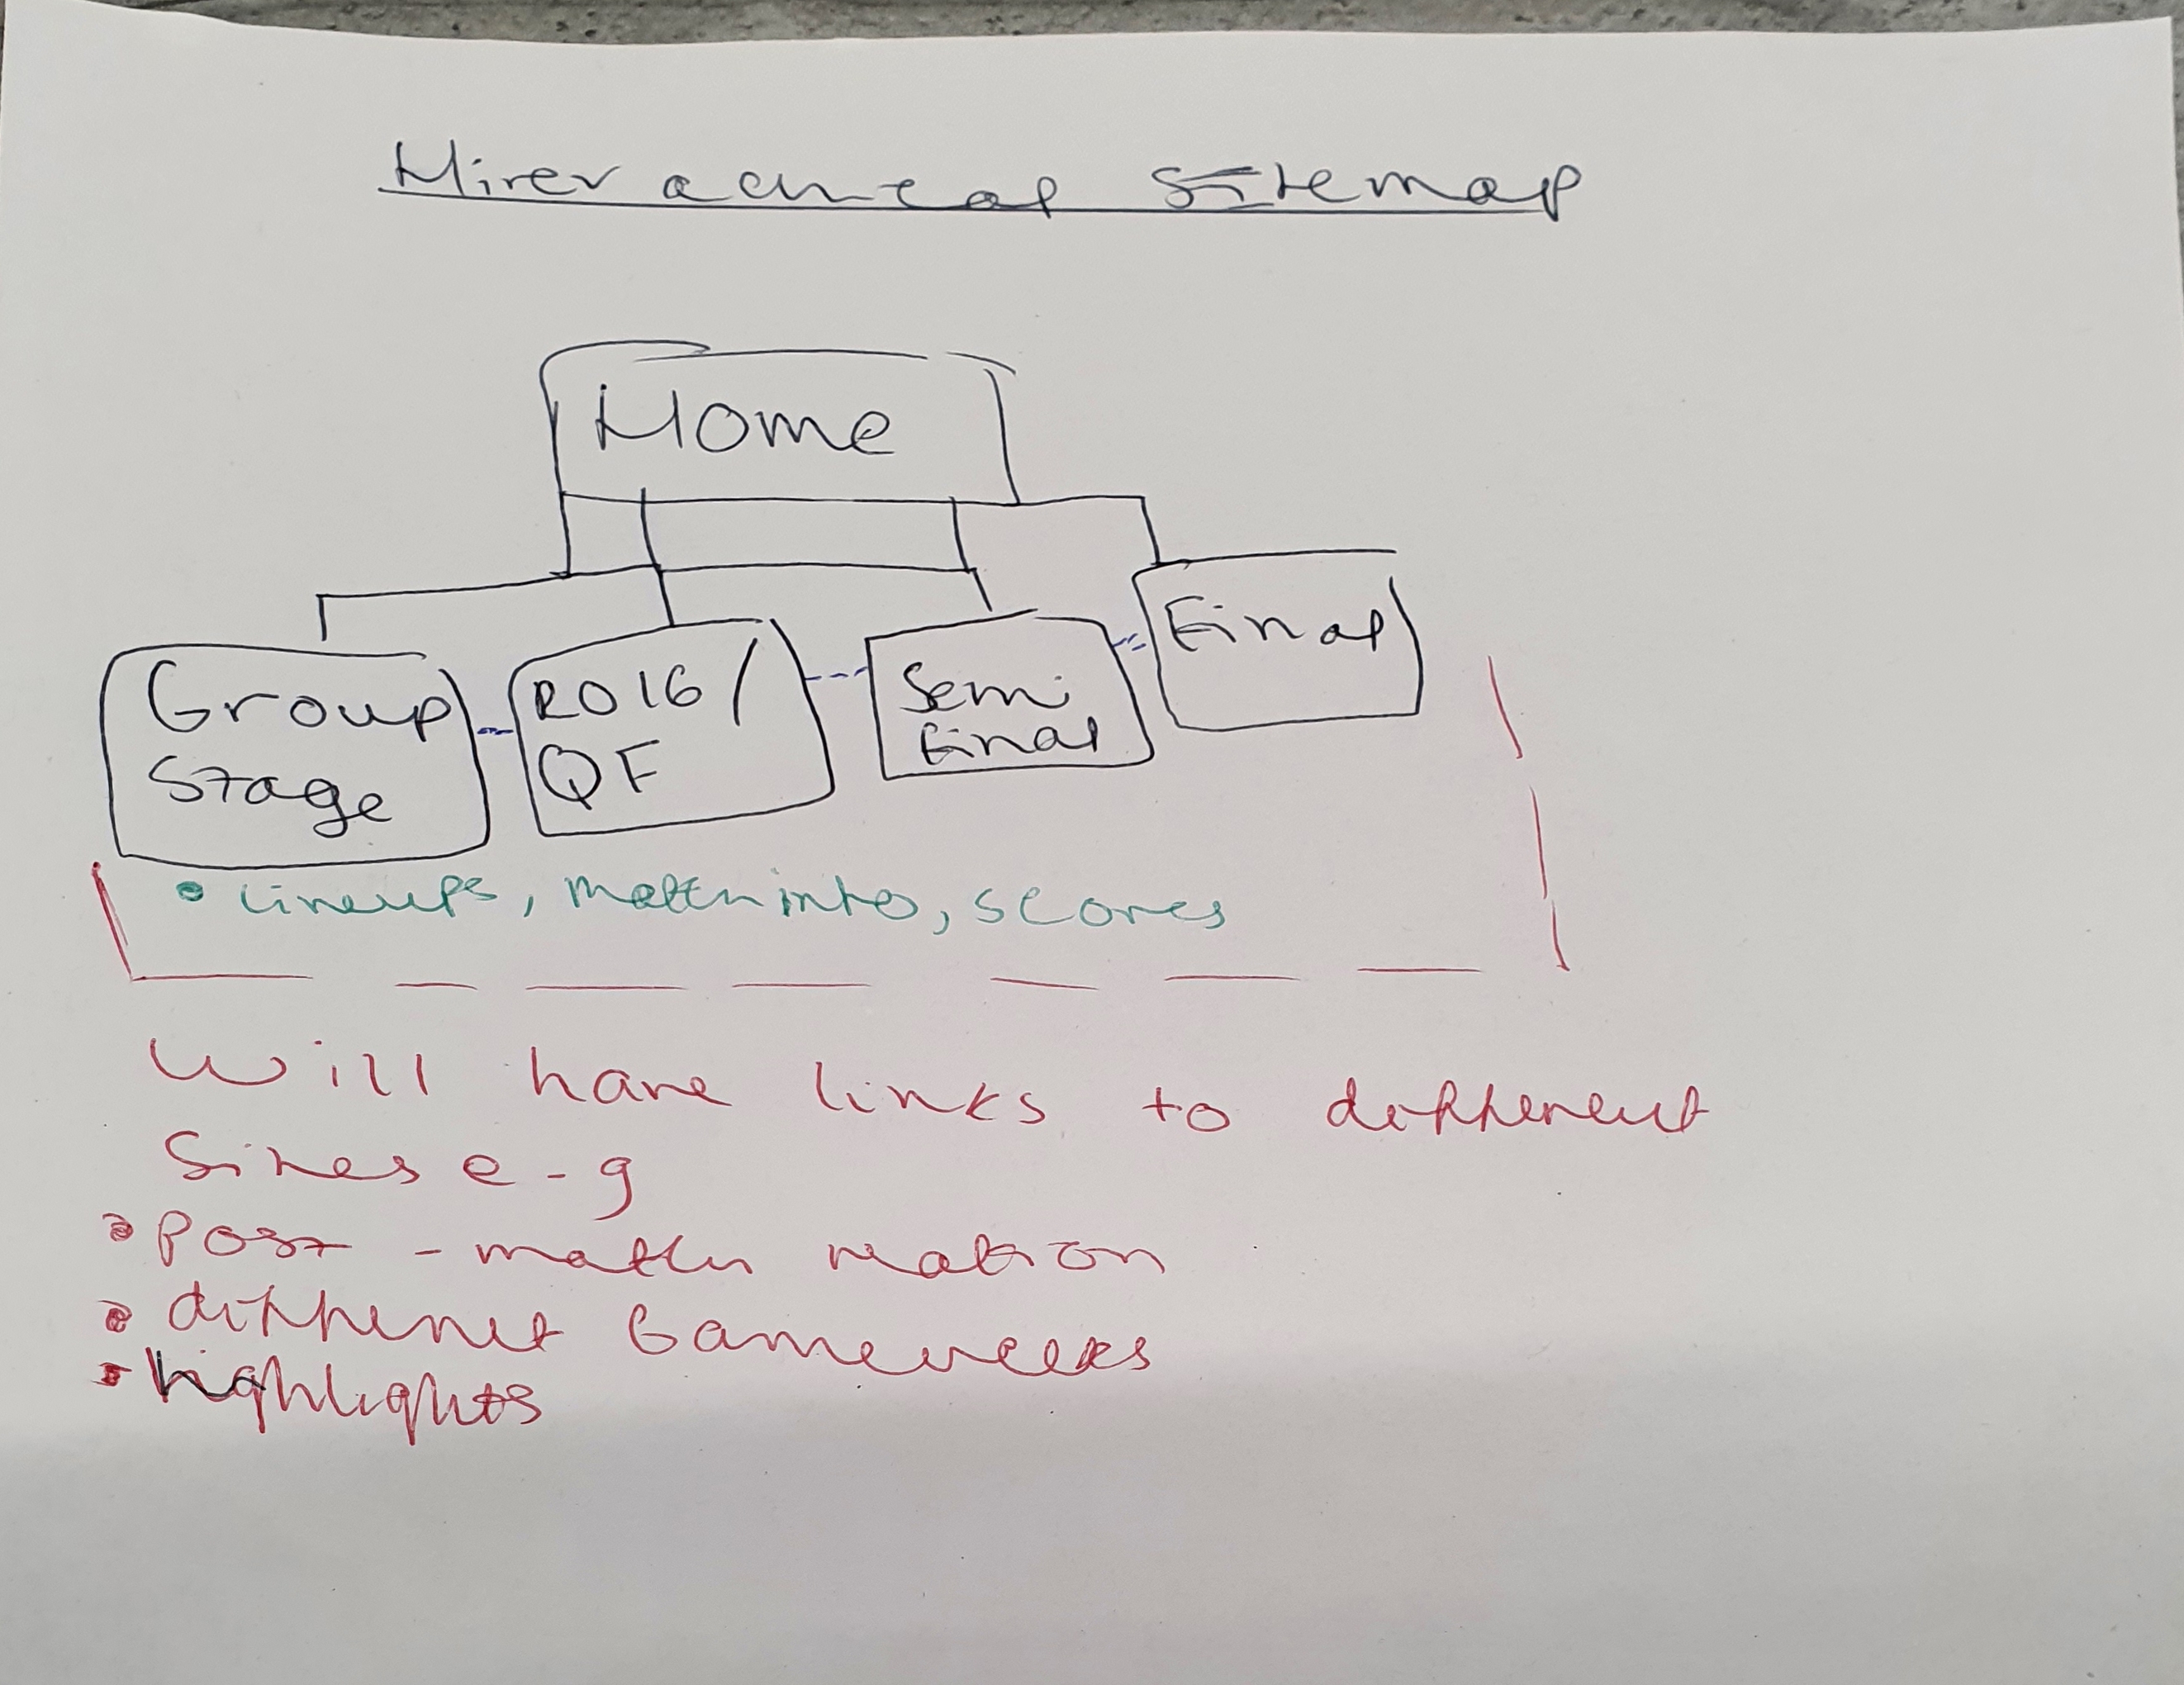 Hirerachcal Sitemap
Home
Group
Stage
RO16/
QF
Semi
final
Final
• Lineups, Match info, scores
Will have links to different
Sites e-g
• Post-match reation
• different Gameweeks
• highlights